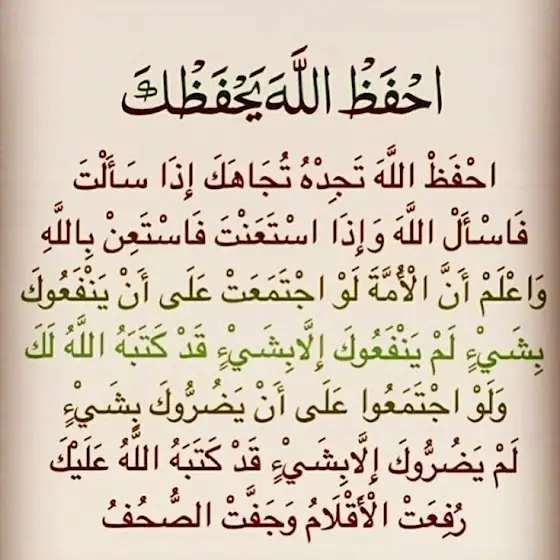 احْفَظْ اللَّهَ يَحْفَظْكَ
احْفَظْ اللَّهَ تَجِدْهُ تُجَاهَكَ إِذَا سَأَلْتَ
فَاسْأَلْ اللَّهَ وَإِذَا اسْتَعَنْتَ فَاسْتَعِنْ بِاللَّهِ
وَاعْلَمْ أَنَّ الْأُمَّةَ لَوْ اجْتَمَعَتْ عَلَى أَنْ يَنْفَعُوكَ
بِشَيْءٍ لَمْ يَنْفَعُوكَ إِلَّا بِشَيْءٍ قَدْ كَتَبَهُ اللَّهُ لَكَ
وَلَوْ اجْتَمَعُوا عَلَى أَنْ يَضُرُّوكَ بِشَيْءٍ
لَمْ يَضُرُّوكَ إِلَّا بِشَيْءٍ قَدْ كَتَبَهُ اللَّهُ عَلَيْكَ
رُفِعَتْ الْأَقْلَامُ وَجَفَّتْ الصُّحُفُ